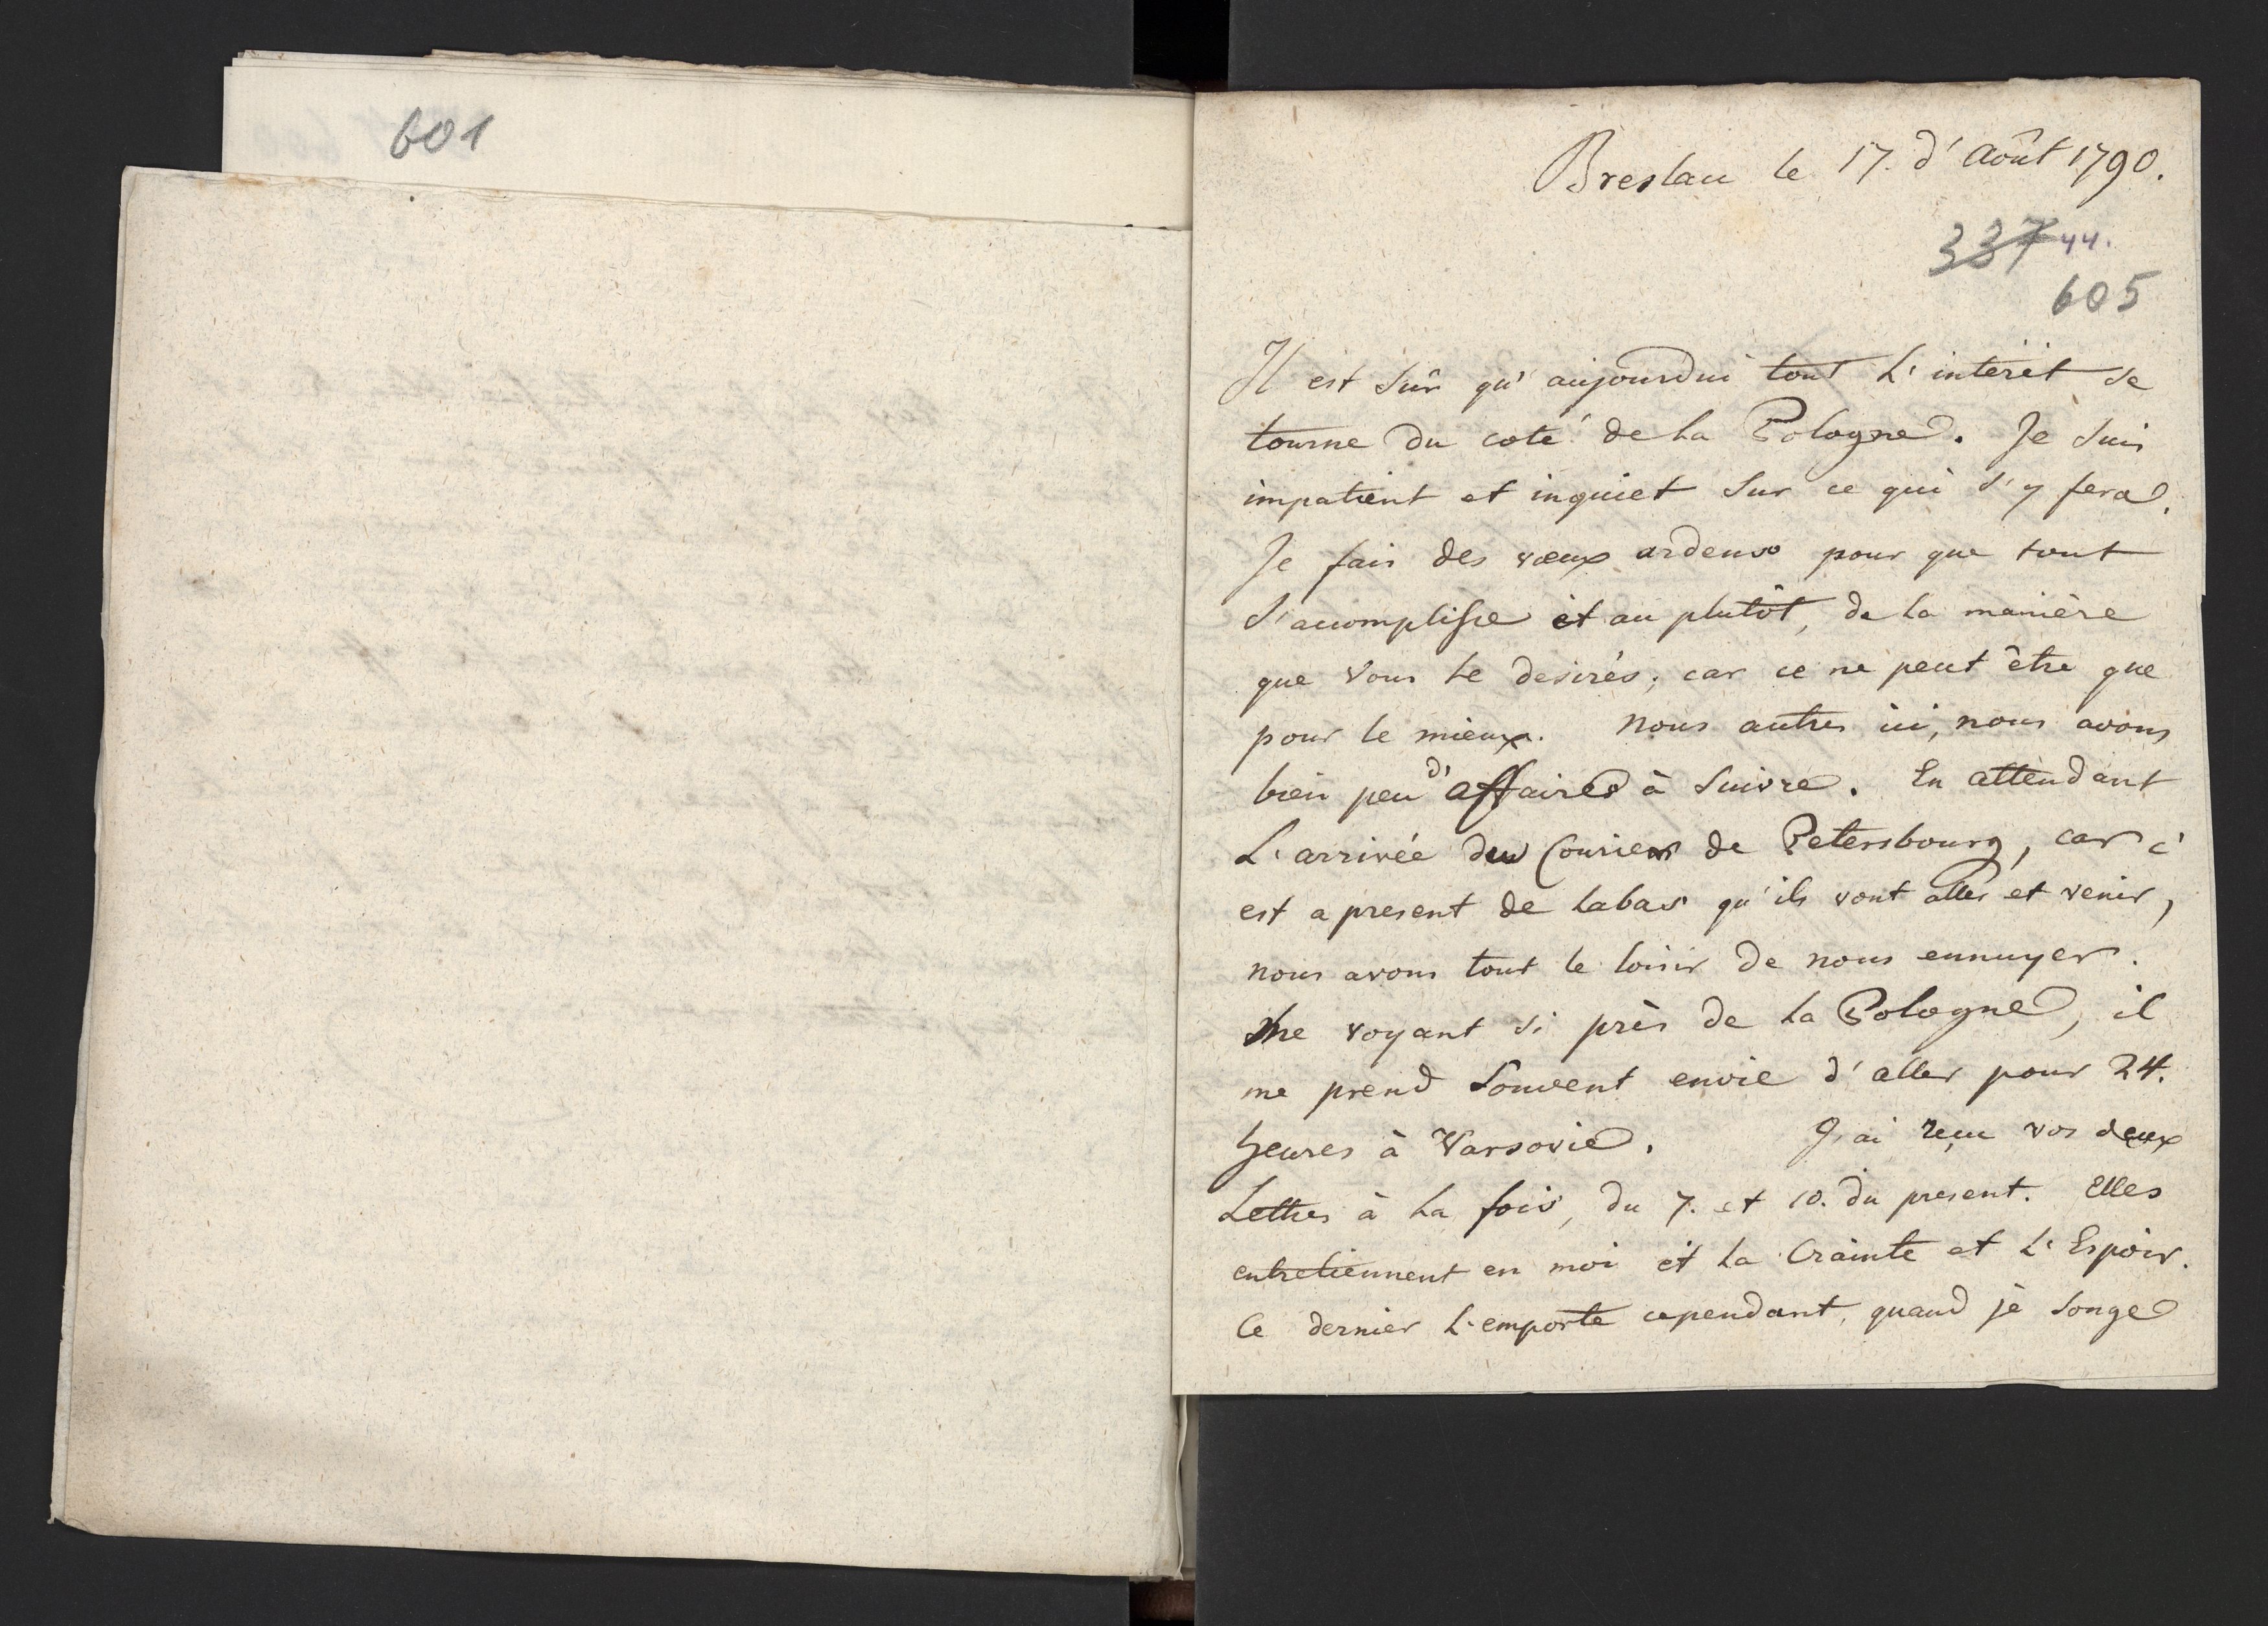 601
Breslau le 17. d'Août 1790.
337 44.
605
Il est sûr qu'aujourdui tout l'interêt se
tourne du coté de la Pologne. Je suis
impatient et inquiet sur ce qui s'y fera.
Je fais des vœux ardens pour que tout
s'accomplisse et au plutôt, de la manière
que vous le desirés; car ce ne peut être que
pour le mieux. Nous autres ici, nous avons
bien peu d'affaires à suivre. En attendant
l'arrivée du Courier de Petersbourg, car c'
est a present de labas qu'ils vont aller et venir,
nous avons tout le loisir de nous ennuyer.
Me voyant si près de la Pologne, il
me prend souvent envie d'aller pour 24.
heures à Varsovie. J'ai reçu vos deux
Lettres à la fois, du 7. et 10. du present. Elles
entretiennent en moi et la Crainte et l'Espoir.
Ce dernier l'emporte cependant, quand je songe